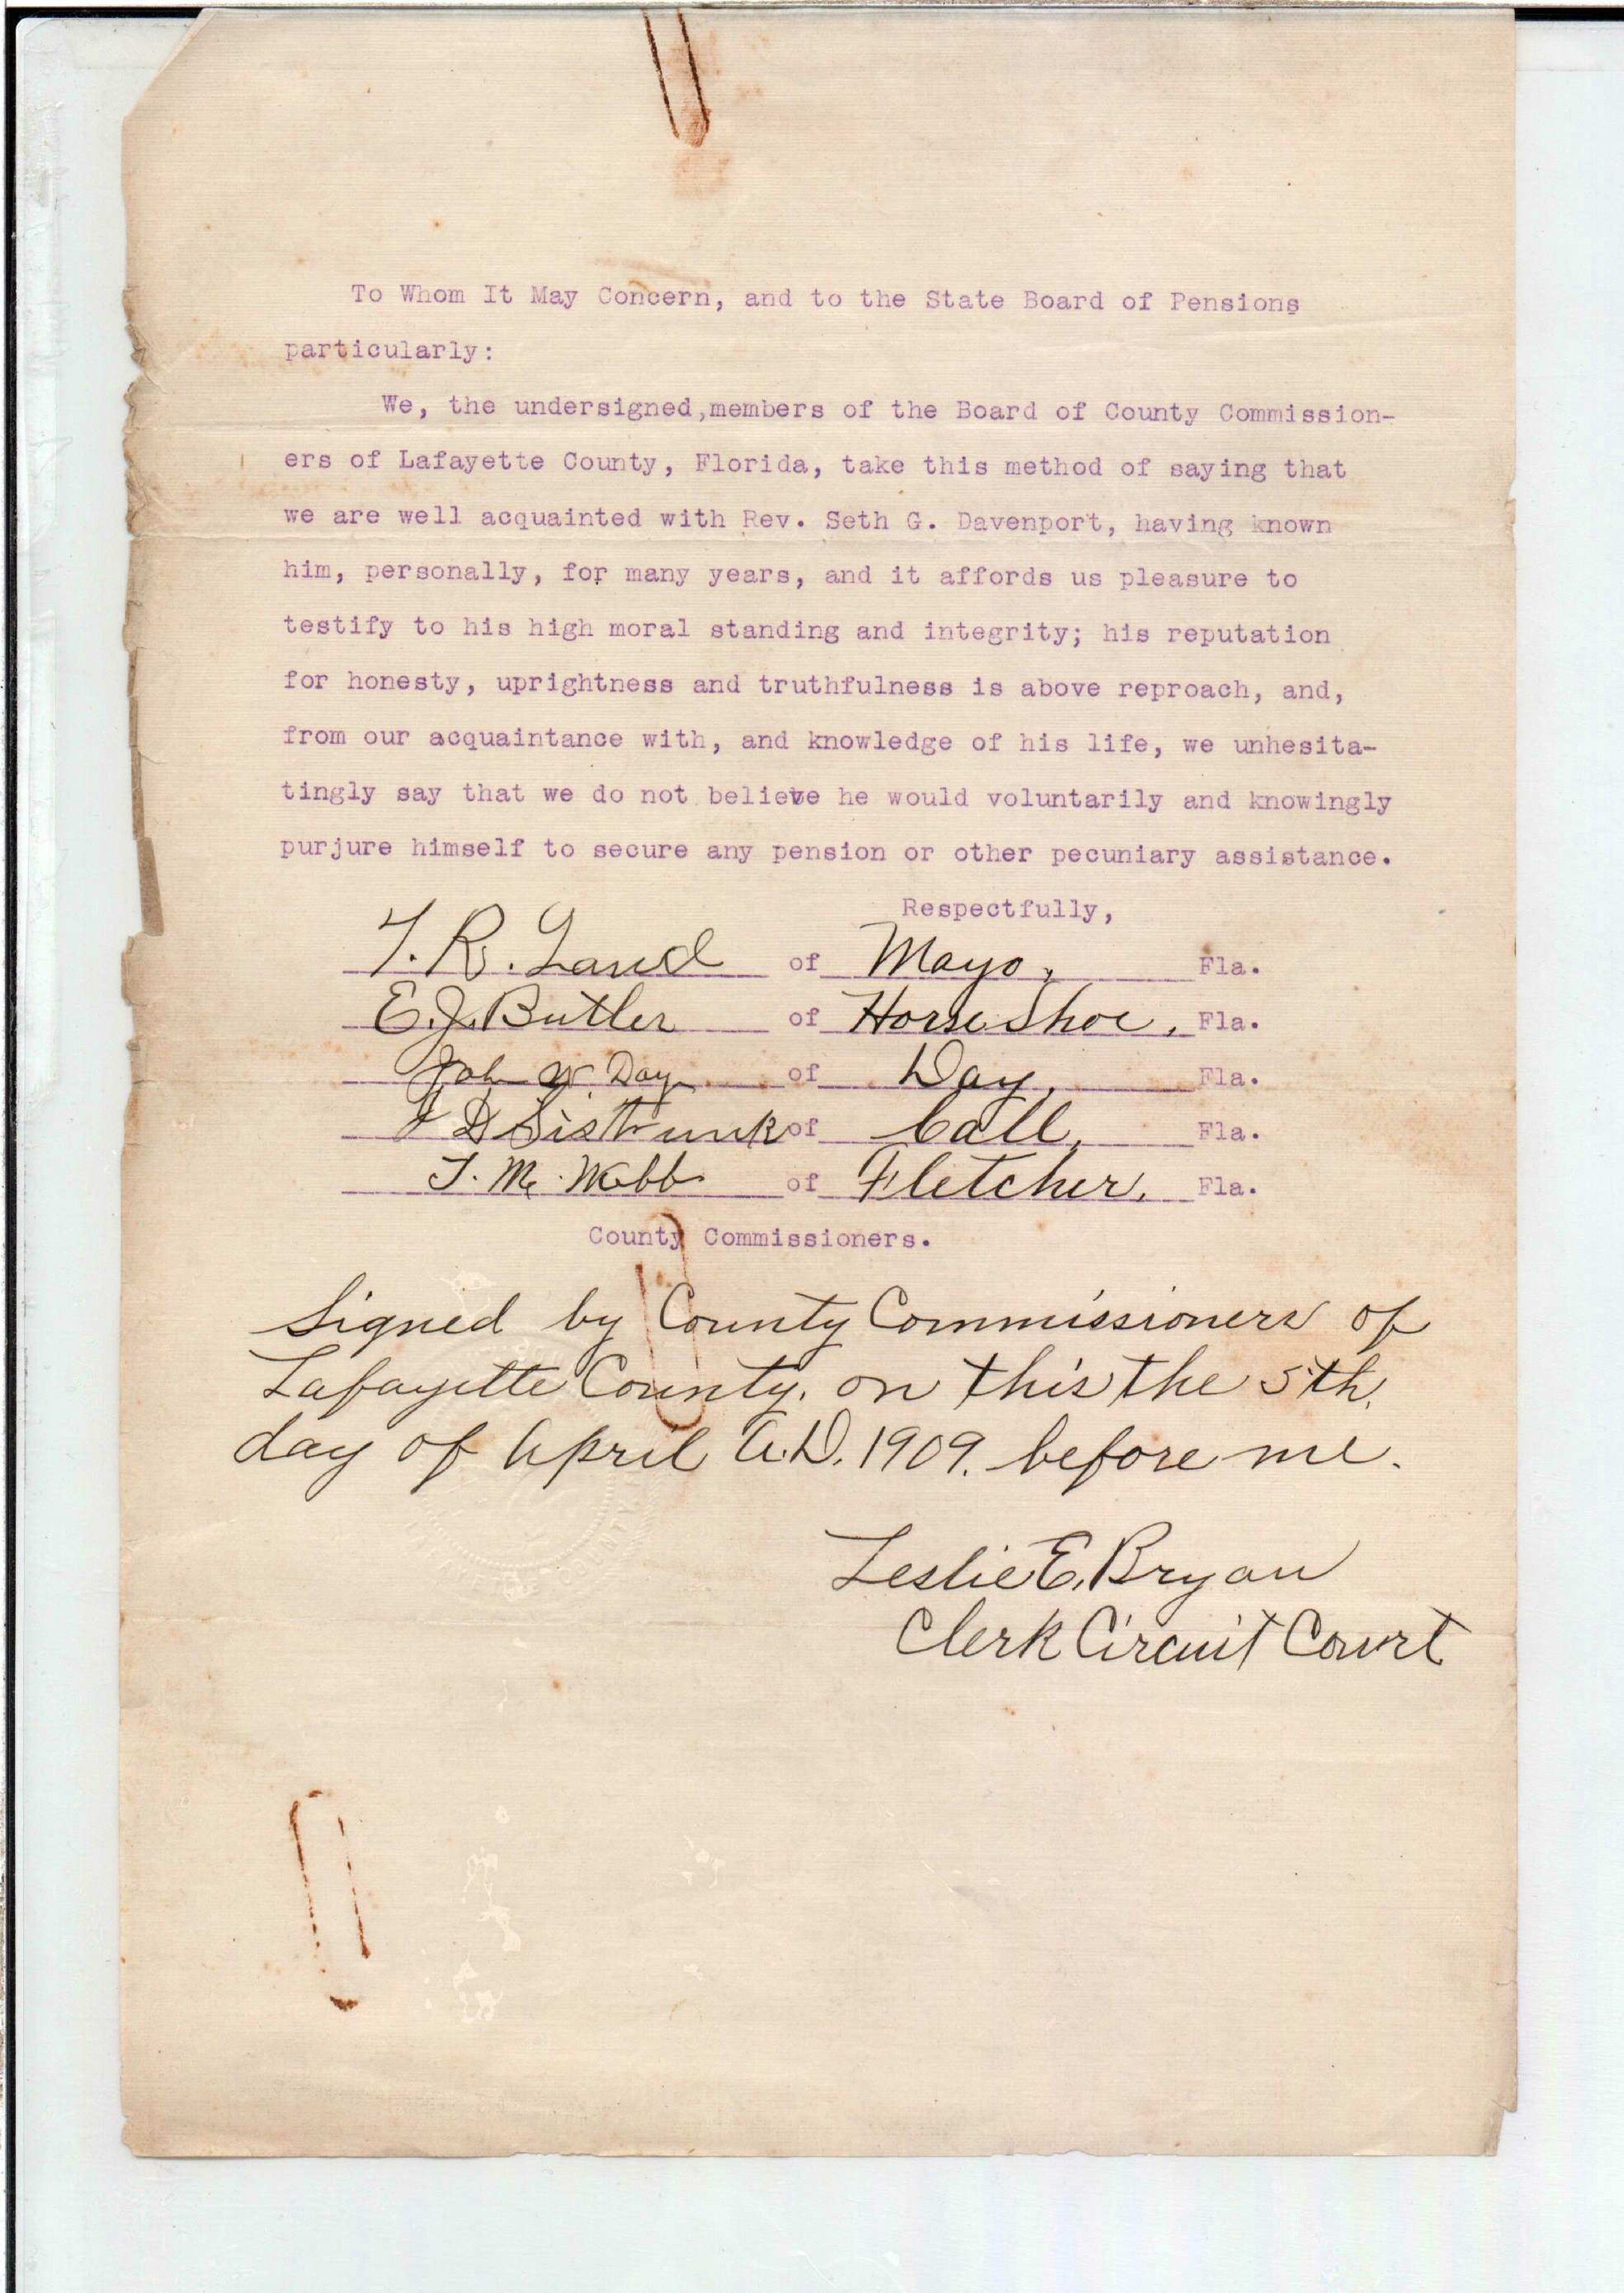 To Whom It May Concern, and to the State Board of Pensions
particularly:
We, the undersigned,members of the Board of County Commission-
ers of Lafayette County, Florida, take this method of saying that
we are well acquainted with Rev. Seth G. Davenport, having known
him, personally, for many years, and it affords us pleasure to
testify to his high moral standing and integrity; his reputation
for honesty, uprightness and truthfulness is above reproach, and,
from our acquaintance with, and knowledge of his life, we unhesita-
tingly say that we do not believe he would voluntarily and knowingly
purjure himself to secure any pension or other pecuniary assistance.
Respectfully,
T. R. Land of Mayo, Fla.
E. J. Butler of Horse Shoe, Fla.
John W. Day of Day, Fla.
D Sistrunk of Call, Fla.
T. M. Webb of Fletcher, Fla.
County Commissioners.
Signed by County Commissioners of
Lafayette County, on this the 5th,
day of April A.D. 1909. before me.
Leslie E. Bryan
Clerk Circuit Court